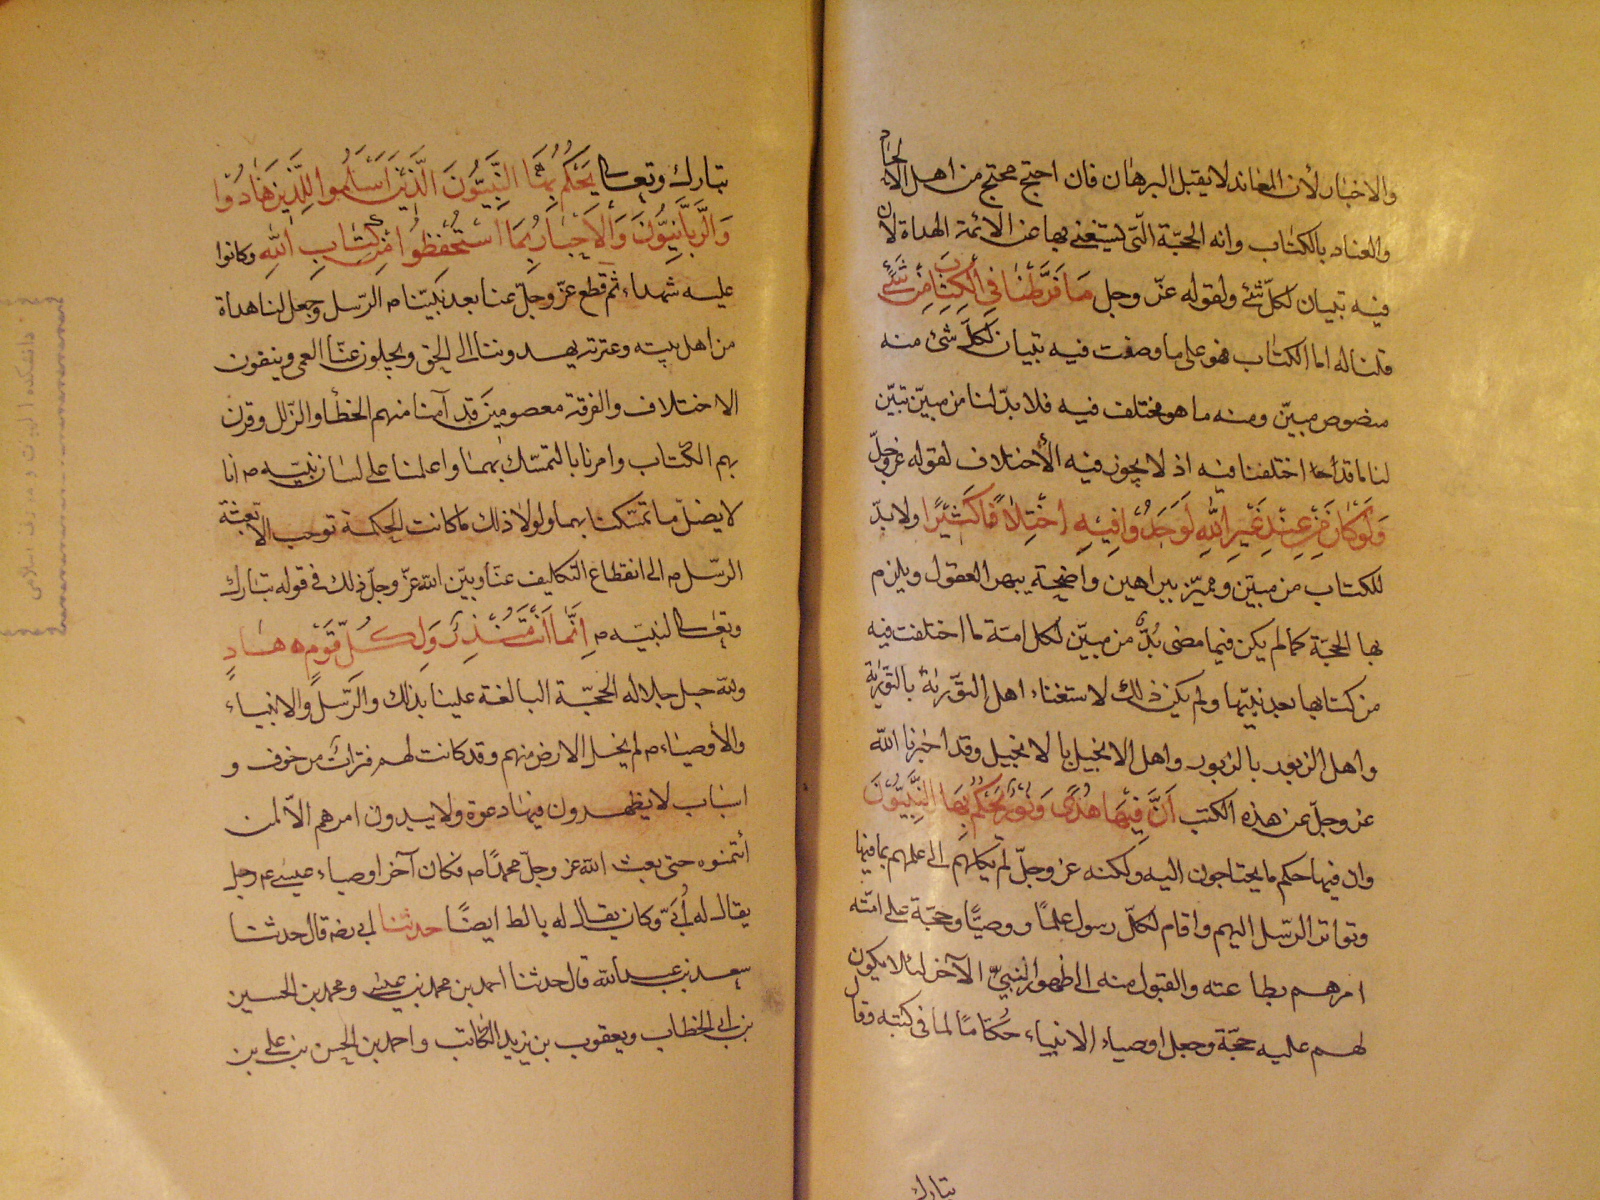 والاخبار لأن المعاند لا يقبل البرهان فان احتج محتج من اهل الالحاد
والعناد بالكتاب وانه الحجّة الّتى يستغنى بها عن الائمة الهداة لان
فيه تبيان لكلّ شئ ولقوله عزّ وجل مَا فَرَّطْنَا فِى الْكِتَابِ مِنْ شَىْءٍ
قلنا له اما الكتاب فهو على ما وصفت فيه تبيان لكلّ شئ منه
منصوص مبيّن ومنه ما هو مختلف فيه فلا بدّ لنا من مبيّن تبيّن
لنا ما قد اختلفنا فيه اذ لا يجوز فيه الأختلاف لقوله عز وجلّ
وَلَوْ كَانَ مِنْ عِنْدِ غَيْرِ اللهِ لَوَجَدُوا فِيهِ اخْتِلَافًا كَثِيْرًا ولا بدّ
للكتاب من مبيّن ومميّز ببراهين واضحة يبهر العقول ويلزم
بها الحجّة كما لم يكن فيما مضى بُدٌّ من مبيّن لكل امّة ما اختلفت فيه
من كتابها بعد نبيّها ولم يكن ذلك لاستغناء اهل التوّرية بالتورية
واهل الزبور بالزبور واهل الانجيل بالانجيل وقد اخبرنا الله
عز وجلّ عن هذه الكتب اَنَّ فِيْهَا هُدًى وَنُوْرٌ يَحْكُمُ بِهَا النَّبِيُّوْنَ
وان فيها حكم ما يحتاجون اليه ولكنه عز وجلّ لم يكلهم الى علمهم بما فيها
وتواتر الرسّل اليهم واقام لكلّ رسول علمًا ووصيًّا وحجّة على امّته
امرهم بطاعته والقبول منه الى ظهور النبىّ الآخر لئلا يكون
لهم عليه حجّة وجعل اوصياء الانبياء حُكّامًا لما فى كتبه وقال
تبارك
تبارك وتعالى يَحْكُمُ بِهَا النَّبِيُّوْنَ الَّذِيْنَ اَسْلَمُوا لِلَّذِيْنَ هَادُوْا
وَالرَّبَّانِيُّوْنَ وَالْاَحْبَارُ بِمَا اسْتُحْفِظُوا مِنْ كِتَابِ اللهِ وكانوا
عليه شهداء ثم قطع عزّ وجلّ عنا بعد نبيّنا م الرّسل وجعل لنا هداة
من اهل بيته وعترته يهدوننا الى الحق ويجلون عنّا العمى وينفون
الاختلاف والفرقة معصومين قد آمنا منهم الخطأ والزّلل وقرن
بهم الكتاب وامرنا بالتمسّك بهما واعلمنا على لسان نبيّه م انا
لا يضلّ ما تمسّكنا بهما ولولا ذلك ما كانت الحكمة توجب الا بعثة
الرسّل م الى انقطاع التّكاليف عنّا وبيّن الله عزّ وجلّ ذلك فى قوله تبارك
وتعالى لنبيّه م اِنَّمَا اَنْتَ مُنْذِرٌ وَلِكُلِّ قَوْمٍ هَادٍ
ولله جل جلاله الحجّة البالغة علينا بذلك والرّسل والانبياء
والأوصياء م لم يخل الارض منهم وقد كانت لهم فترات من خوف و
اسباب لا يظهرون فيها دعوة ولا يبدون امرهم الاّ لمن
ائتمنوه حتى بعث الله عز وجلّ محمدًا م فكان آخر اوصياء عيسى ع رجل
يقال له اُبَىّ وكان يقال له بالط ايضًا حدثنا ابى رضه قال حدثنا
سعد بن عبد الله قال حدثنا احمد بن محمد بن عيسى ومحمد بن الحسين
بن ابى الخطاب ويعقوب بن يزيد الكاتب واحمد بن الحسن بن على بن